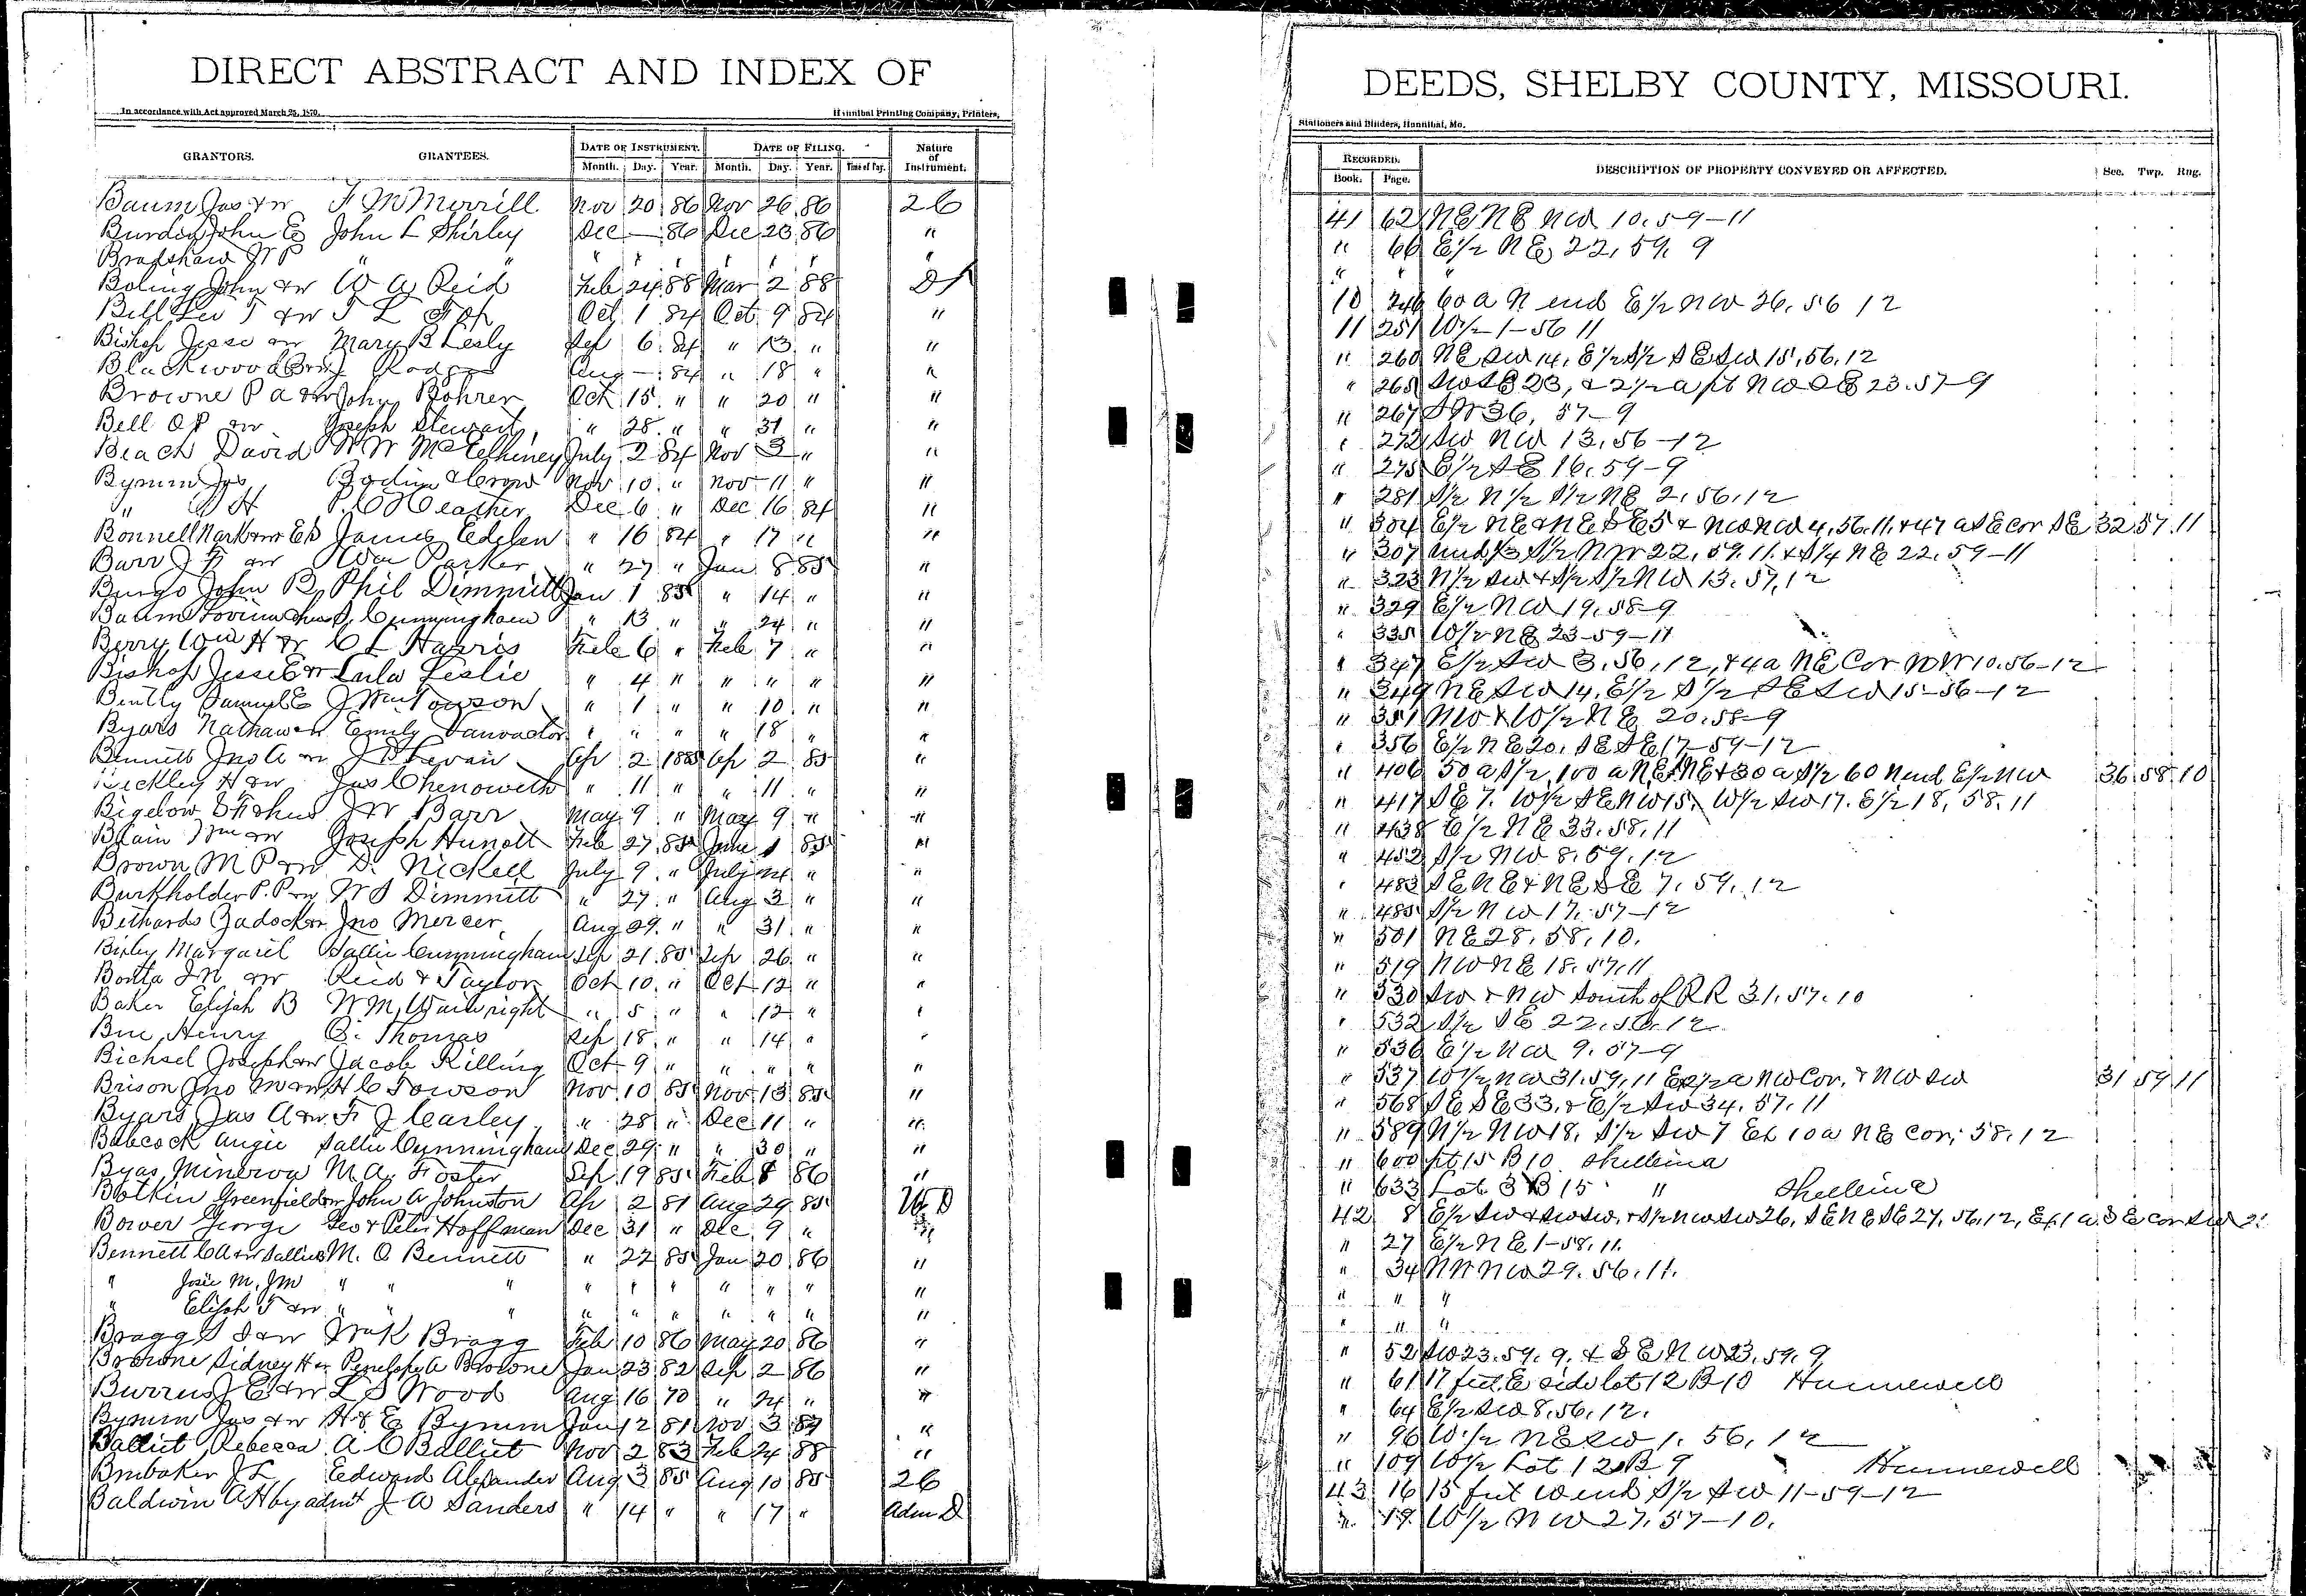 DIRECT ABSTRACT AND INDEX OF
In accordance with Act approved March 25, 1870. Hannibal Printing Company, Printers,
GRANTORS. GRANTEES. DATE OF INSTRUMENT. DATE OF FILING. Nature of Instrument.
Month. Day. Year. Month. Day. Year. Time of Day.
Baum Jas & w F M Morrill Nov 20 86 Nov 26 86 26
Burdin John E John L Shirley Dec — 86 Dec 23 86 "
Bradshaw W P " " " " " " " "
Boling John & w W A Reid Feb 24 88 Mar 2 88
Bell T & w T L Oct 1 84 Oct 9 84 "
Bishop Jesse & w Mary B Lesly Sep 6 84 " 13 " "
Blackwood Rodgers Aug — 84 " 18 " "
Browne P A & w John Bohrer Oct 15 " " 20 " "
Bell O P & w Joseph Stewart " 28 " " 31 " "
Beach David W W McElhiney July 2 84 Nov 3 " "
Bynum Jas Bodine & Crow Nov 10 " Nov 11 " "
" H P. O Heather Dec 6 " Dec 16 84 "
Bonnell Mark & w E D James Edelen " 16 84 " 17 " "
Barr J F & w Wm Parker " 27 " Jan 8 85 "
Bungo John B Phil Dimmitt Jan 1 85 " 14 " "
Baum S. Cunningham " 13 " " 24 " "
Berry Wm H & w C L Harris Feb 6 " Feb 7 " "
Bishop Jesse E & w Lula Leslie " 4 " " " " "
Bently Samuel E J Wm Towson " 1 " " 10 " "
Byars Nathan & w Emily Vanvactor " " " " 18 " "
Bennett Jno A & w J B Levan Apr 2 1885 Apr 2 85 "
Bickley H & w Jas Chenoweth " 11 " " 11 " "
Bigelow J W Barr May 9 " May 9 " "
Blain Wm & w Joseph Hunolt Feb 27 85 June 1 85 "
Brown M P & w D. Nickell July 9 " July 24 " "
Burkholder P. P & w W S Dimmitt " 27 " Aug 3 " "
Bethards Zadock & w Jno Mercer Aug 29 " " 31 " "
Bixley Margaret Sallie Cunningham Sep 21 85 Sep 26 " "
Bonta J N & w Reid & Taylor Oct 10 " Oct 12 " "
Baker Elijah B W M Wainright " 5 " " 12 " "
Bue Henry C. Thomas Sep 18 " " 14 " "
Bichsel Joseph & w Jacob Killing Oct 9 " " " " "
Brison Jno M & w H C Towson Nov 10 85 Nov 13 85 "
Byars Jas A & w F J Carley " 28 " Dec 11 " "
Babcock Angie Sallie Cunningham Dec 29 " " 30 " "
Byas Minerva M. A. Foster Sep 19 85 Feb 8 86 "
Botkin Greenfield & w John A Johnston Apr 2 81 Aug 29 85 W D
Bower George Geo & Peter Hoffman Dec 31 " Dec 9 " "
Bennett C A & w Sallie M. O Bennett " 22 85 Jan 20 86 "
" Josie M. J M " " " " " " " " " "
" Elijah T & w " " " " " " " " "
Bragg S J & w Wm K Bragg Feb 10 86 May 20 86 "
Browne Sidney H & w Penelope A Browne Jan 23 82 Sep 2 86 "
Burrus J E & w L S Wood Aug 16 70 " 24 " "
Bynum Jas & w H & E Bynum Jan 12 81 Nov 3 87 "
Balliet Rebecca A C Balliet Nov 2 83 Feb 24 88 "
Brubaker J L Edward Alexander Aug 3 85 Aug 10 85 26
Baldwin A H by admr J A Sanders " 14 " " 17 " Adm D
DEEDS, SHELBY COUNTY, MISSOURI.
Stationers and Binders, Hannibal, Mo.
RECORDED. DESCRIPTION OF PROPERTY CONVEYED OR AFFECTED. Sec. Twp. Rng.
Book. Page.
41 62 NE NE NW 10. 59–11
" 66 E½ NE 22, 59, 9
" " "
10 246 60 a N. end E½ NW 26. 56 12
11 251 W½ 1–56 11
" 260 NE SW 14, E½ S½ SE SW 15, 56, 12
" 265 SW SE 23, & 2½ a pt NW SE 23. 57–9
" 267 SW 36, 57–9
" 272 SW NW 13, 56–12
" 275 E½ SE 16. 59–9
" 281 S½ N½ S½ NE 2, 56, 12
" 304 E½ NE & NE SE 5 & NW NW 4, 56, 11, & 47 a SE cor SE 32 57 11
" 307 und ⅓ S½ NW 22, 59. 11. & S¼ NE 22, 59–11
" 323 N½ SW & S½ S½ NW 13. 57, 12
" 329 E½ NW 19. 58–9
" 335 W½ NE 23–59–11
" 347 E½ SW 3, 56, 12, & 4 a NE Cor NW 10. 56–12
" 349 NE SW 14, E½ S½ SE SW 15–56–12
" 351 NW & W½ NE 20. 58–9
" 356 E½ NE 20, SE SE 17–59–12
" 406 50 a S½ 100 a NE NE & 30 a S½ 60 N end E½ NW 36 58 10
" 417 SE 7. W½ SE NW 15, W½ SW 17. E½ 18, 58. 11
" 438 E½ NE 33. 58. 11
" 452 S½ NW 8, 59, 12
" 483 SE NE & NE SE 7, 59, 12
" 485 S½ NW 17, 57–12
" 501 NE 28, 58, 10.
" 519 NW NE 18. 57, 11
" 530 SW & NW South of RR 31. 57. 10
" 532 S½ SE 22, 56, 12
" 536 E½ NW 9. 57–9
" 537 W½ NW 31. 59, 11 Ex 2½ a NW Cor, & NW SW 31 59 11
" 568 SE SE 33, & E½ SW 34, 57, 11
" 589 N½ NW 18, S½ SW 7 Ex 10 a NE cor, 58, 12
" 600 pt 15 B 10 Shelbina
" 633 Lot 3 B 15 " Shelbina
42 8 E½ SW & SW SW, & S½ NW SW 26, SE NE SE 27, 56, 12, Ex 1 a SE cor
" 27 E½ NE 1–58. 11.
" 34 NW NW 29. 56. 11.
" " "
" " "
" 52 SW 23. 59. 9. & SE NW 23. 59. 9
" 61 17 feet E side lot 12 B 10 Hunnewell
" 64 E½ SW 8, 56, 12.
" 96 W½ NE SW 1. 56, 12
" 109 W½ Lot 12 B 9 Hunnewell
43 16 15 feet W end S½ SW 11–59–12
" 19 W½ NW 27. 57–10.